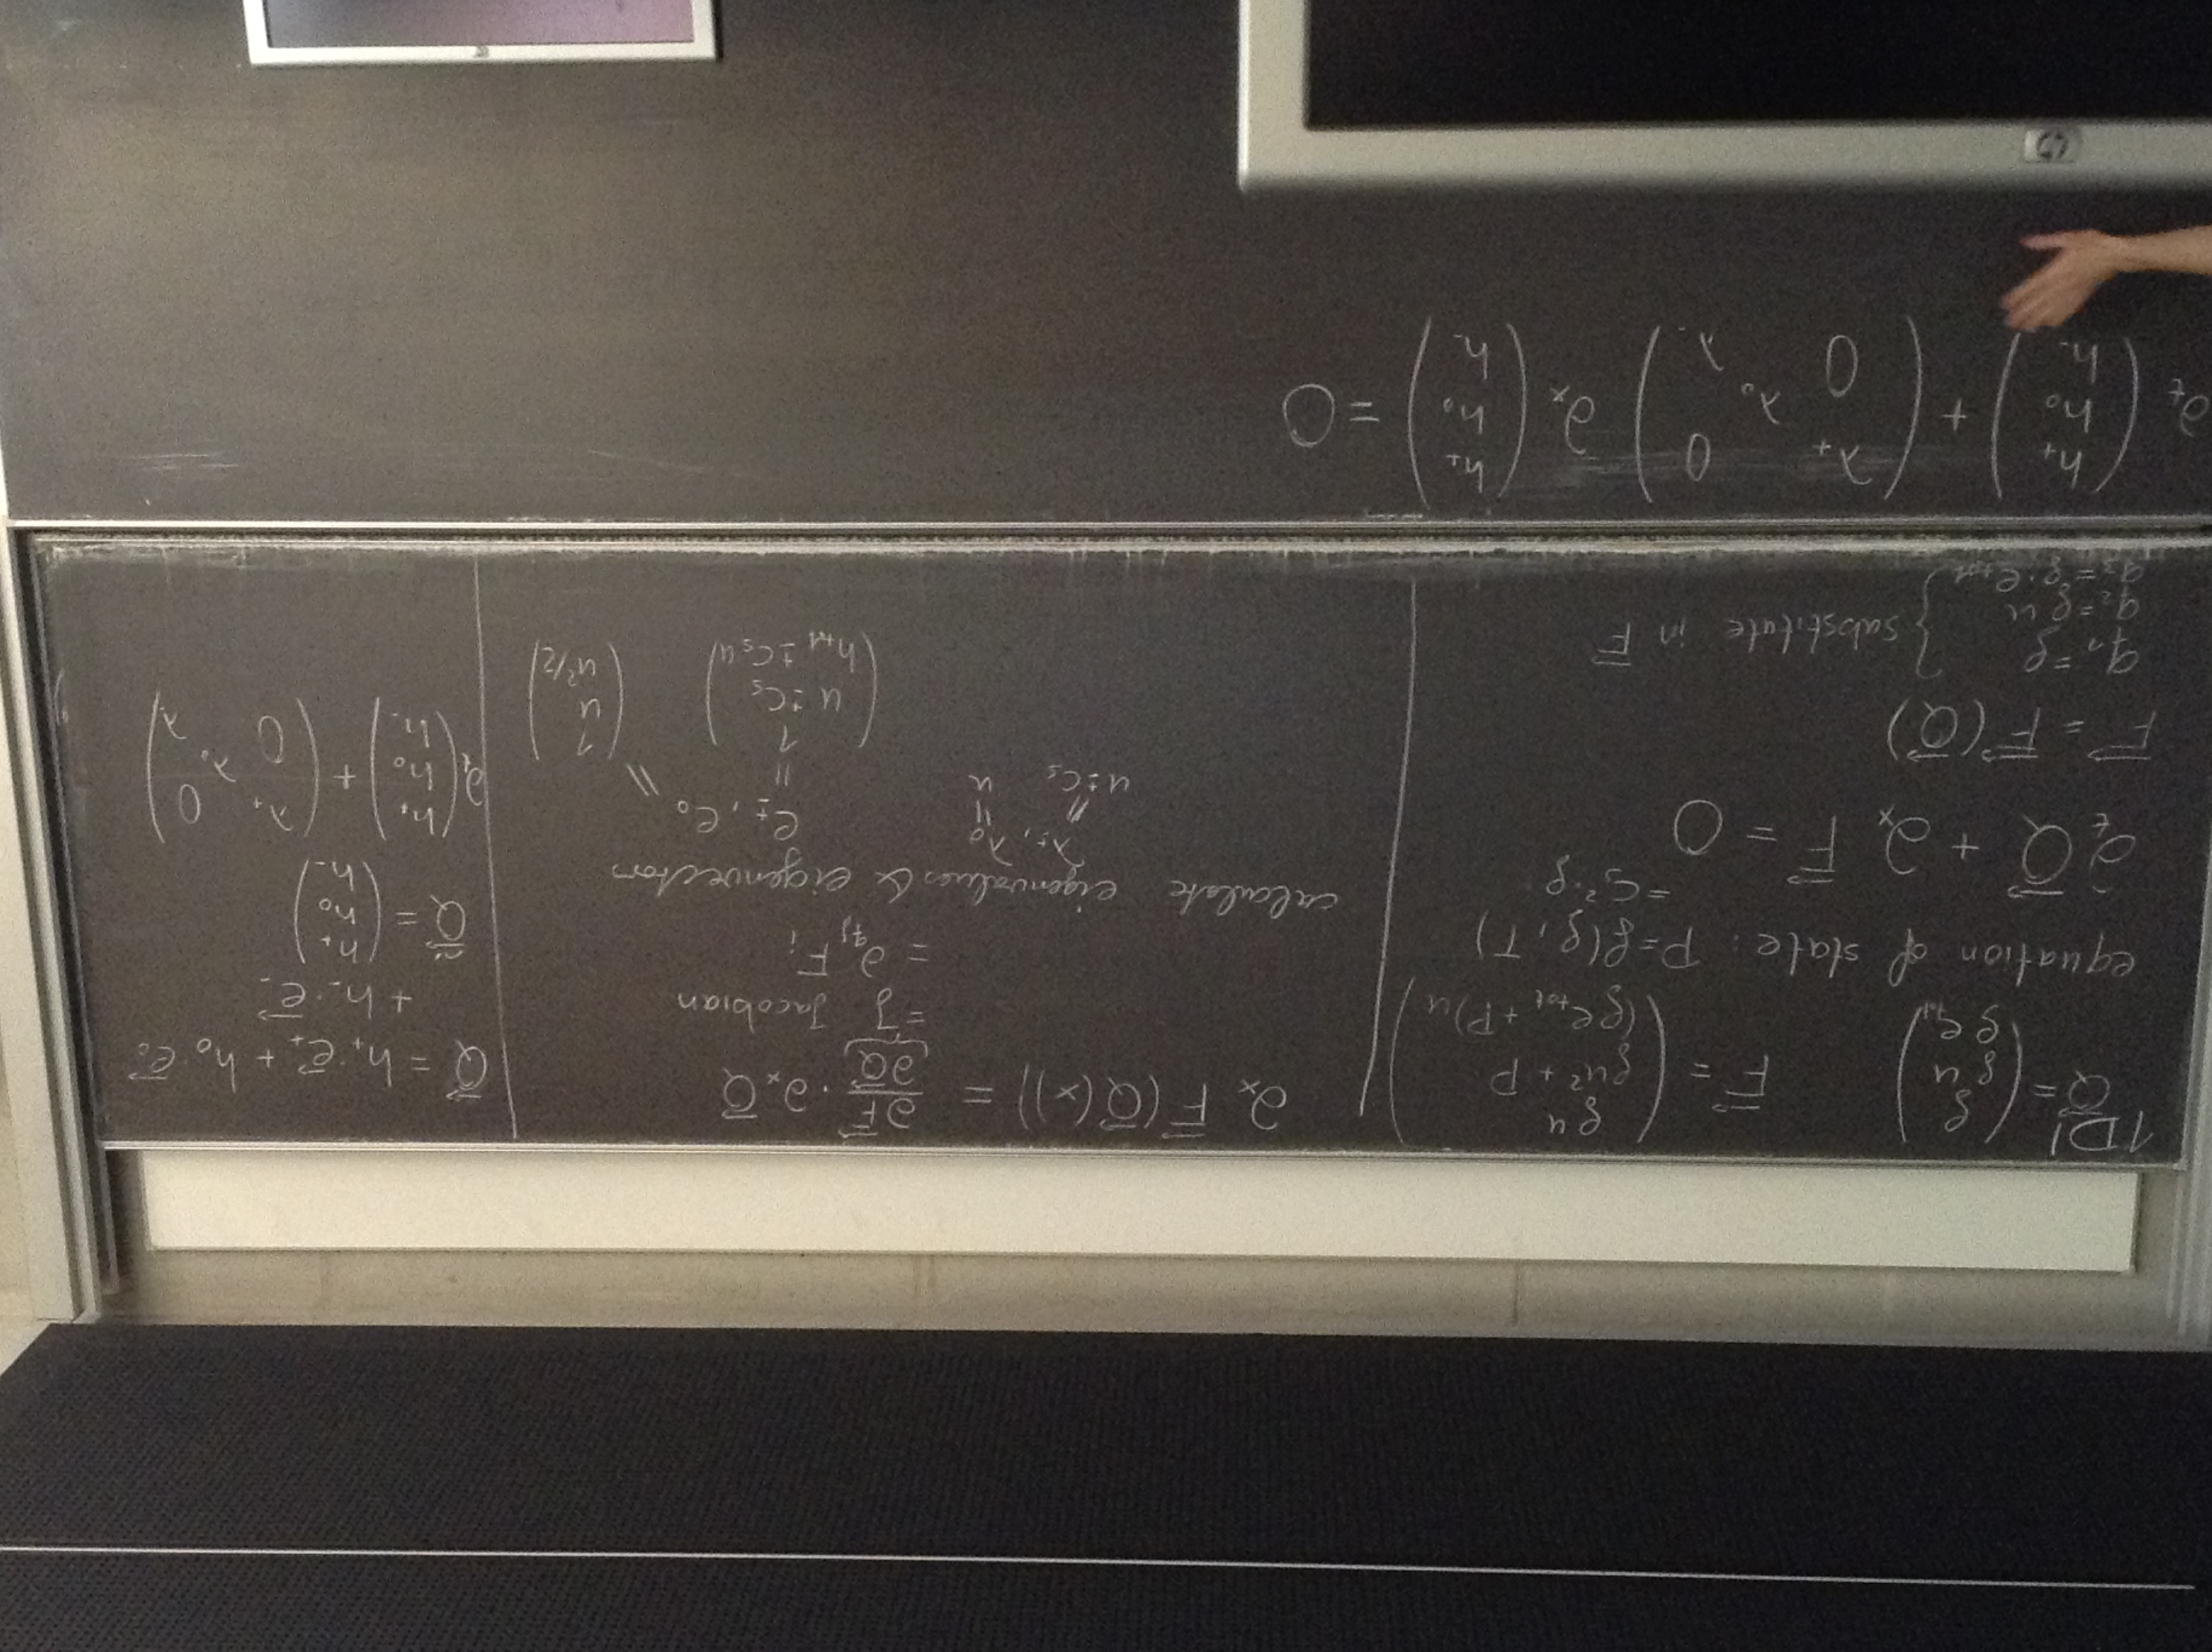 1D!
Q⃗ = (ρ, ρu, ρe_tot)   F⃗ = (ρu, ρu² + P, (ρe_tot + P)u)
equation of state: P = f(ρ, T)
= c_s² · ρ
∂_t Q⃗ + ∂_x F⃗ = 0
F⃗ = F⃗(Q⃗)
q₁ = ρ
q₂ = ρu
q₃ = ρ · e_tot
} substitute in F⃗
∂_x F⃗(Q⃗(x)) = ∂F⃗/∂Q⃗ · ∂_x Q⃗
= J Jacobian
= ∂_qj F_i
calculate eigenvalues & eigenvectors
λ_±, λ₀   e_±, e₀
= u ± c_s   = u
= (1, u ± c_s, h_tot ± c_s u)   = (1, u, u²/2)
Q⃗ = h₊ · e⃗₊ + h₀ · e⃗₀
+ h₋ · e⃗₋
Q̃⃗ = (h₊, h₀, h₋)
∂_t (h₊, h₀, h₋) + (λ₊ 0, λ₀, 0 λ)
∂_t (h₊, h₀, h₋) + (λ₊ 0, λ₀, 0 λ₋) ∂_x (h₊, h₀, h₋) = 0
hp